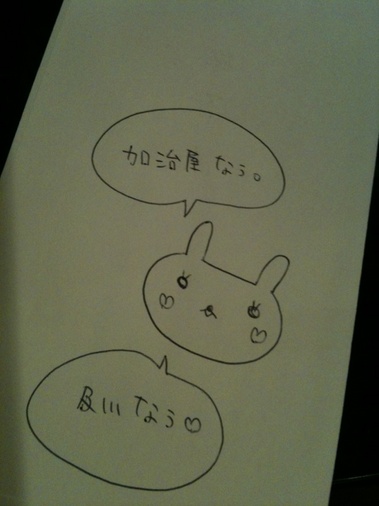 加治屋なう。
及川なう♡